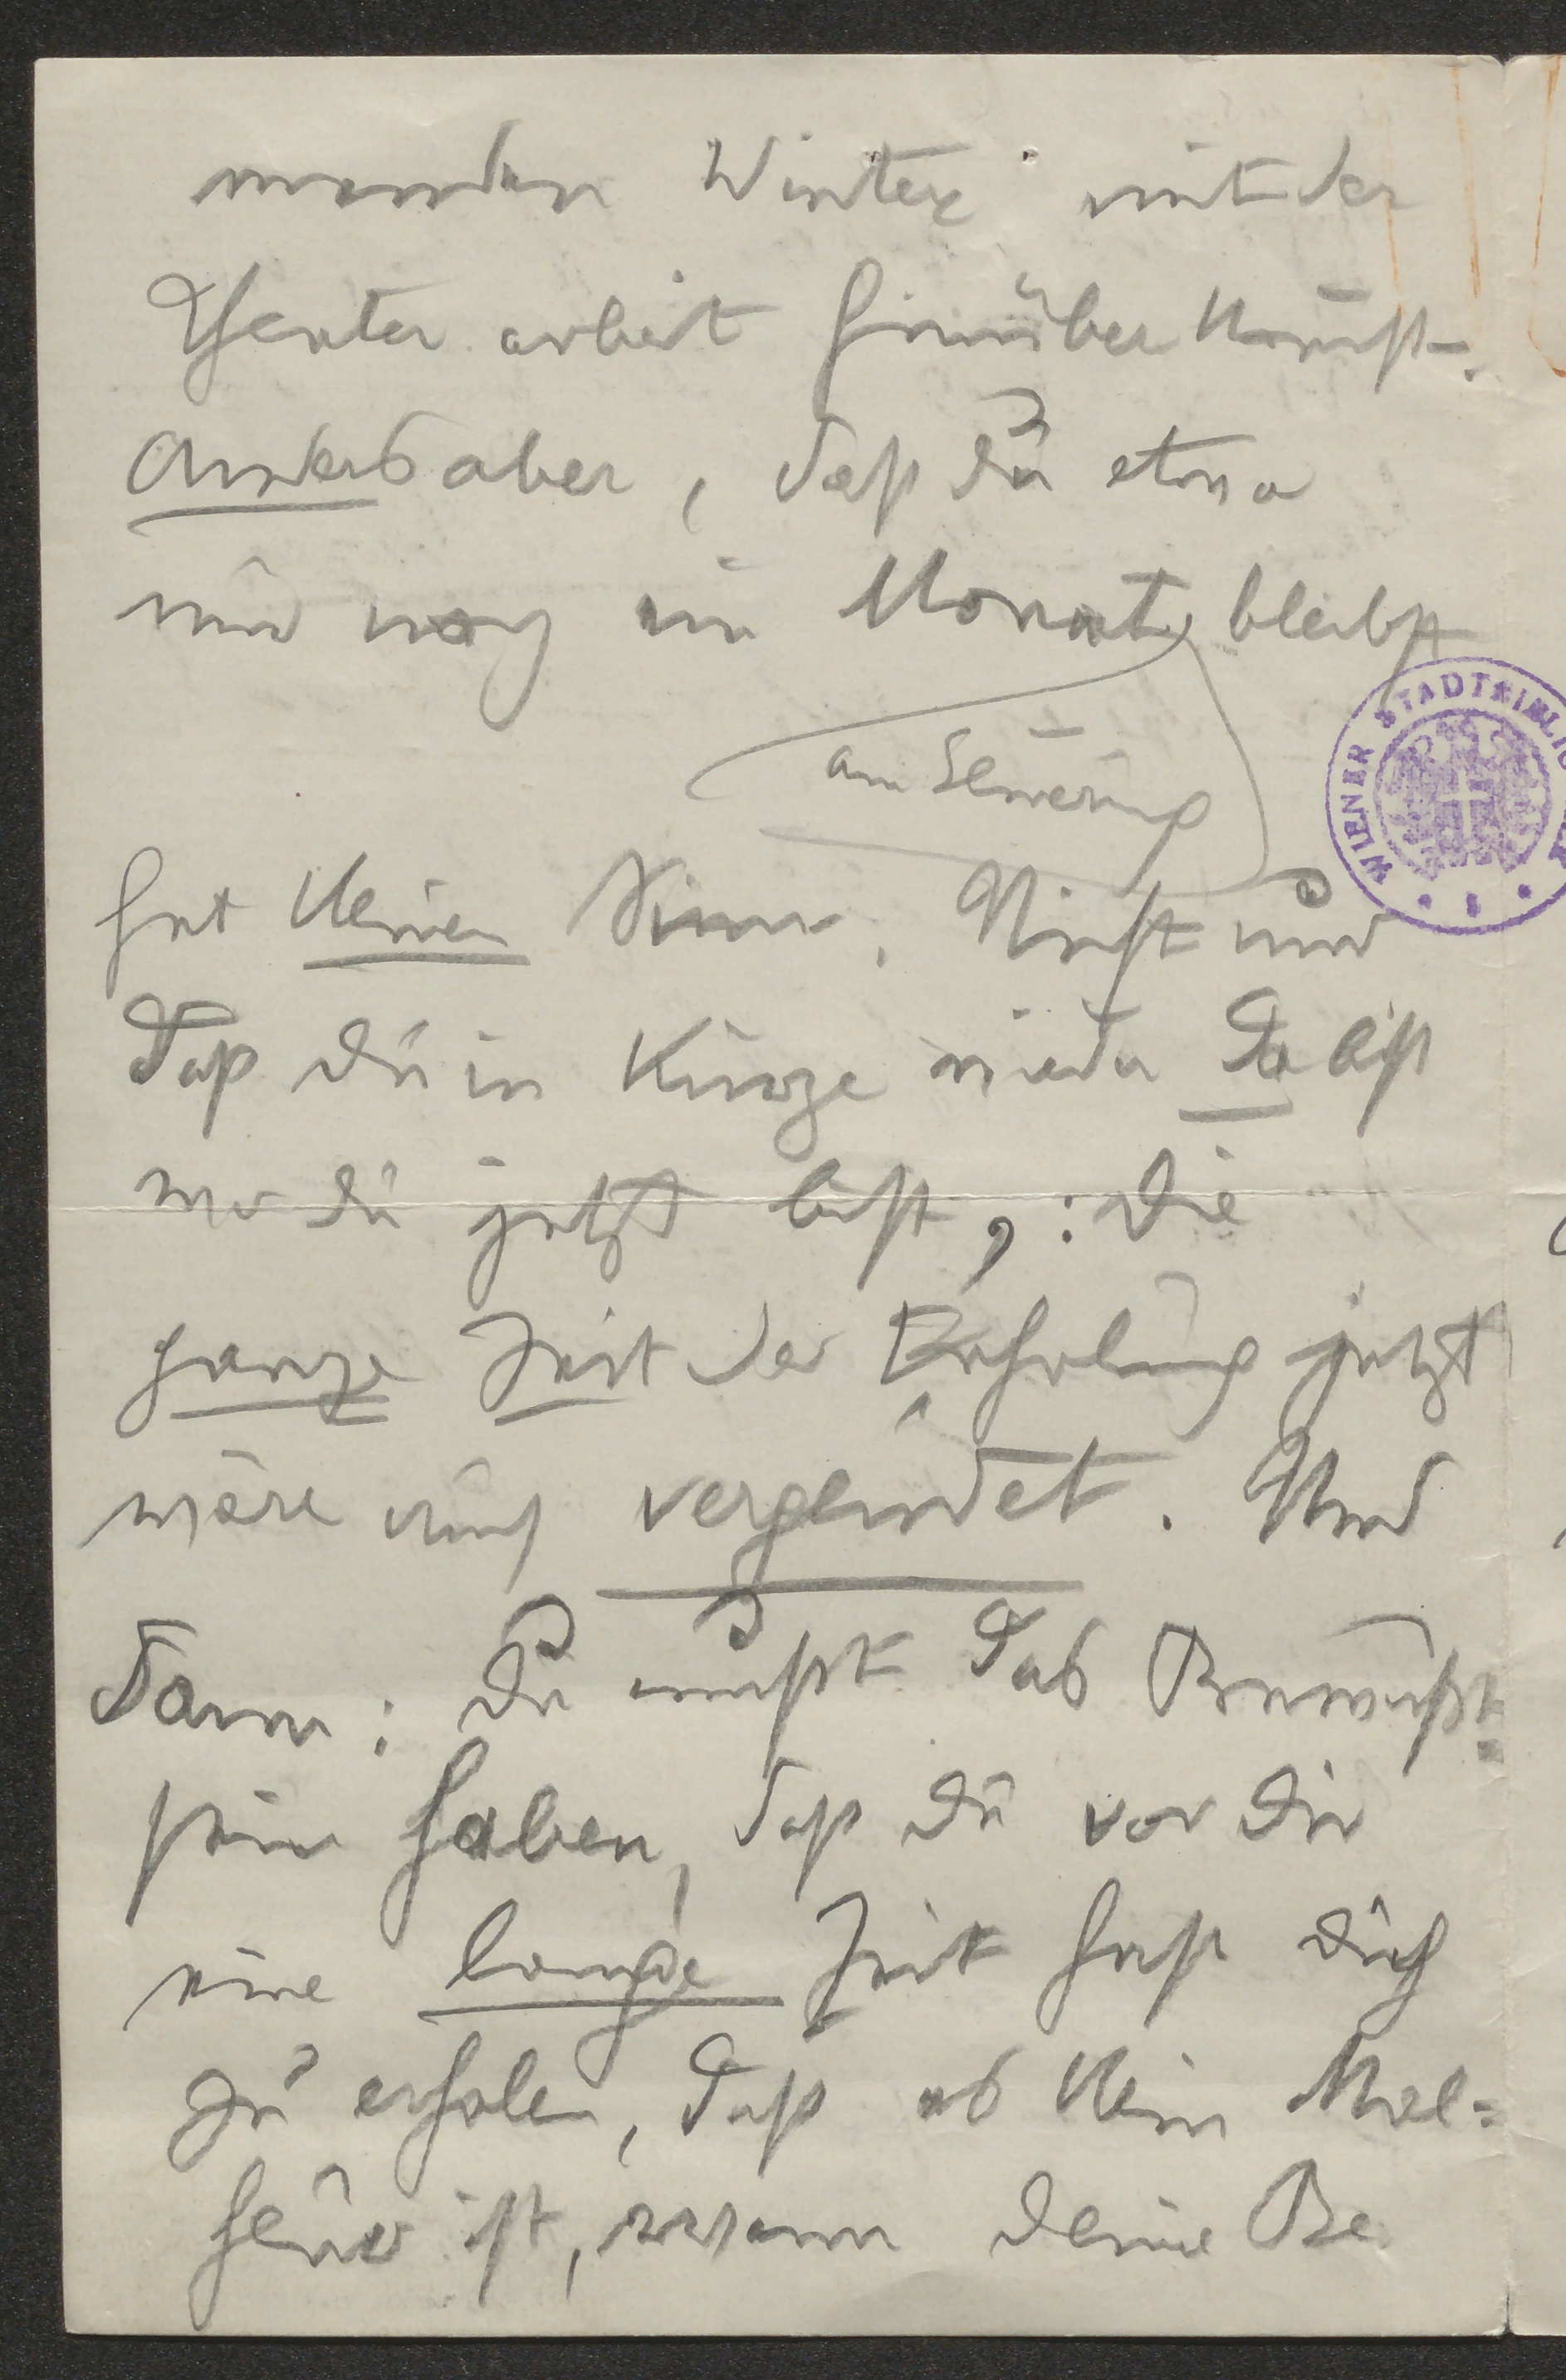 menden Winter mit der
Theater arbeit hinüber kannst.
Anders aber, daß du etwa
nur noch ein Monat bleibst
am Semering
hat keinen Sinn. Nicht nur
daß du in Kürze wieder da bist
wo du jetzt bist,: die
ganze Zeit der Erholung jetzt
wäre auch vergeudet. Und
dann: du mußt das Bewußt-
sein haben, daß du vor dir
eine lange Zeit hast dich
zu erholen, daß es kein Mal-
heur ist, wenn deine Be
WIENER STADTBIBLIO